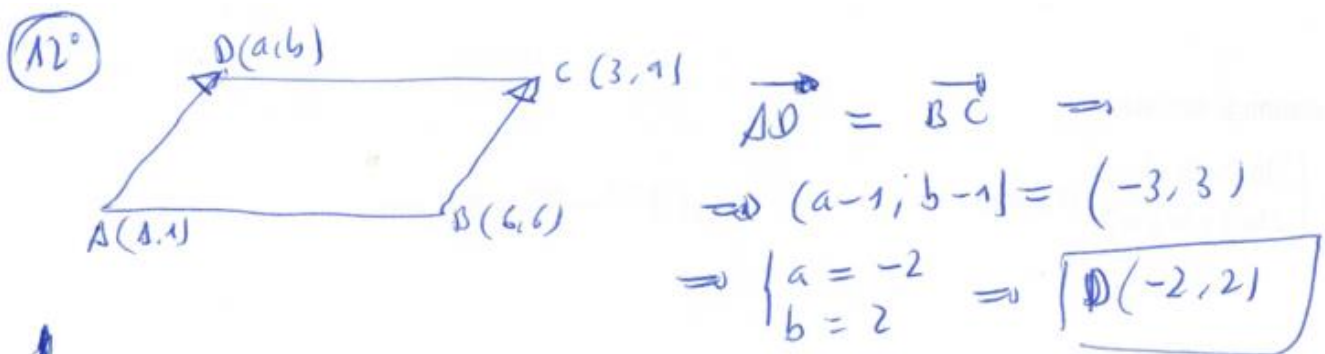 12°
D(a,b)
C (3,9)
A(1,1)
B(6,6)
AD = BC ⇒
⇒ (a-1, b-1) = (-3, 3)
⇒ { a = -2
b = 2 ⇒ D(-2, 2)